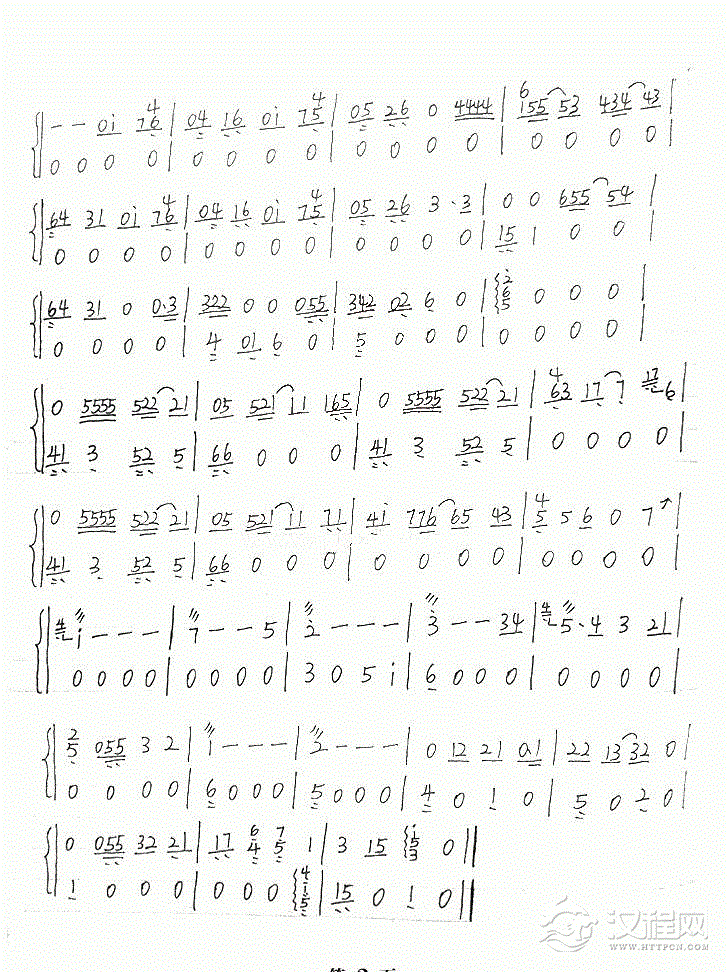 - - 0i 7 6 4 | 04 16 0i 7 5 4 | 05 26 0 4444 | 6 155 53 434 43 |
0 0 0 0 | 0 0 0 0 | 0 0 0 0 | 0 0 0 0 |
64 31 0i 7 6 4 | 04 16 0i 7 5 4 | 05 26 3·3 | 0 0 655 54 |
0 0 0 0 | 0 0 0 0 | 0 0 0 0 | 15 1 0 0 |
64 31 0 0·3 | 322 0 0 055 | 342 02 6 0 | 2 6 5 0 0 0 |
0 0 0 0 | 4 01 6 0 | 5 0 0 0 | 0 0 0 |
0 5555 522 21 | 05 521 11 165 | 0 5555 522 21 | 4 63 17 7 17 6 |
41 3 52 5 | 66 0 0 0 | 41 3 52 5 | 0 0 0 0 |
0 5555 522 21 | 05 521 i1 71 | 4i 776 65 43 | 4 5 5 6 0 7 |
41 3 52 5 | 66 0 0 0 | 0 0 0 0 | 0 0 0 0 |
i - - - | 7 - - 5 | 2 - - - | 3 - - 34 | 5·4 3 21 |
0 0 0 0 | 0 0 0 0 | 3 0 5 i | 6 0 0 0 | 0 0 0 0 |
2 5 055 3 2 | 1 - - - | 2 - - - | 0 12 21 0·1 | 22 13 32 0 |
0 0 0 0 | 6 0 0 0 | 5 0 0 0 | 4 0 1 0 | 5 0 2 0 |
0 055 32 21 | 17 6 4 7 5 1 | 3 15 i 5 3 0 ||
1 0 0 0 | 0 0 0 4 1 5 | 15 0 1 0 ||
汉程网
HTTPCN.COM